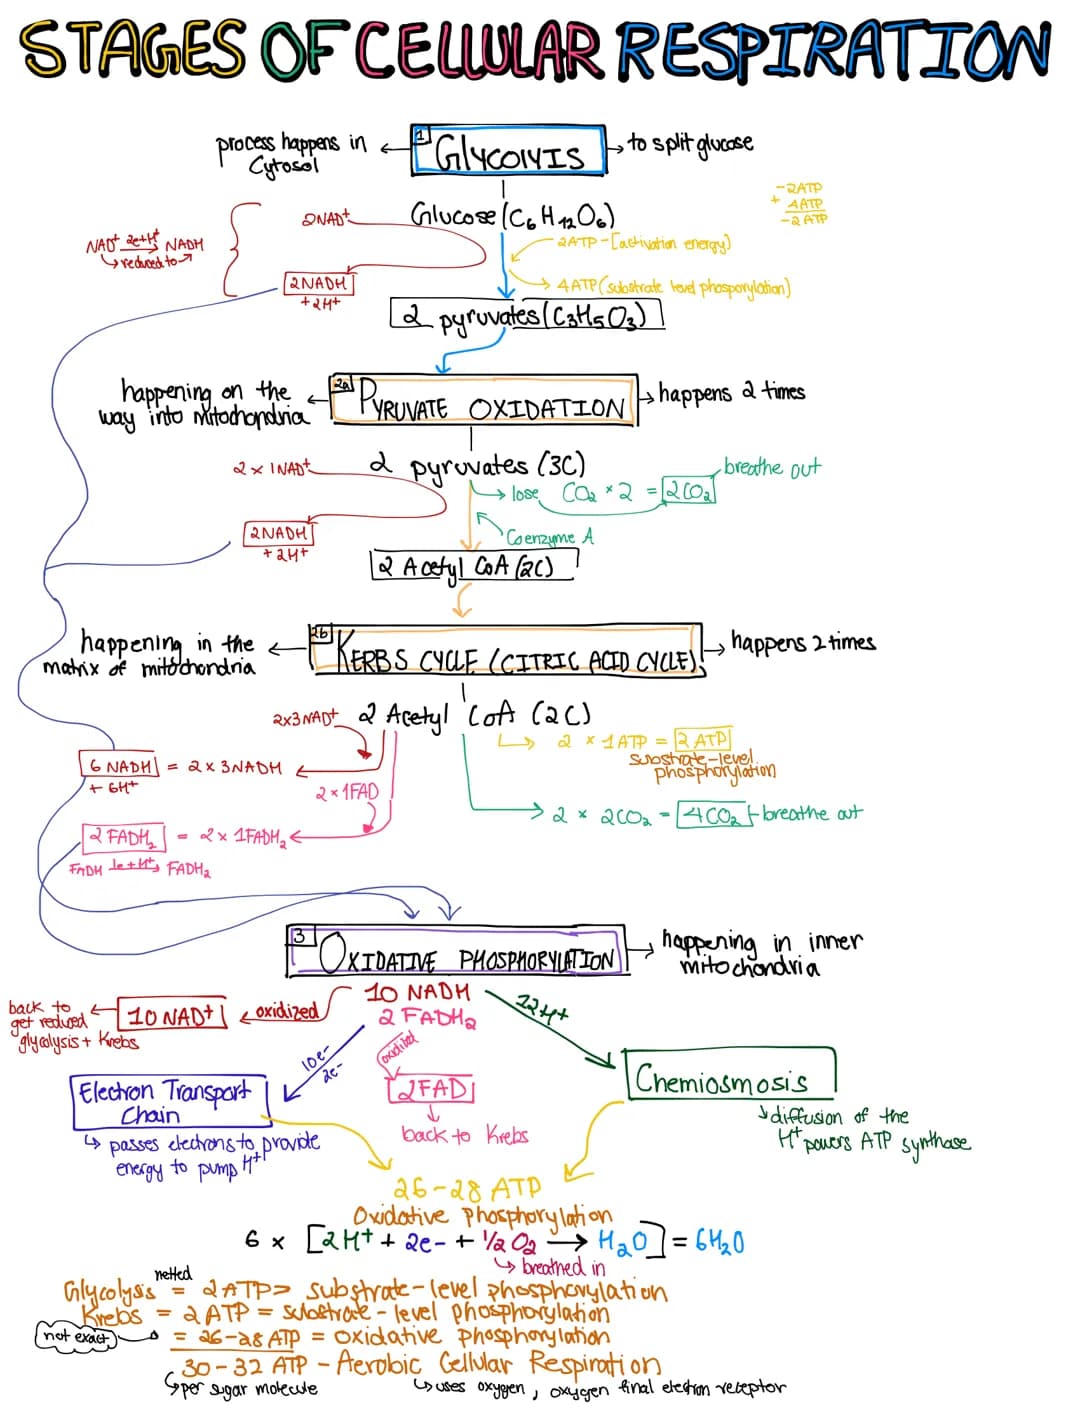 STAGES OF CELLULAR RESPIRATION
process happens in
Cytosol
1
GlycolyIS
to split glucose
-2ATP
+ 4ATP
-2 ATP
2NAD+
Glucose (C6H12O6)
NAD+ 2e+H+ NADH
reduced to
2ATP-[activation energy)
2NADH
+2H+
4ATP (substrate level phosporylation)
2 pyruvates (C3H5O3)
happening on the
way into mitochondria
2a
PYRUVATE OXIDATION
happens 2 times
2 x 1NAD+
2 pyruvates (3C)
breathe out
lose CO2 * 2 = 2CO2
2NADH
+ 2H+
Coenzyme A
2 Acetyl CoA (2C)
happening in the
matrix of mitochondria
2b
KERBS CYCLE (CITRIC ACID CYCLE)
happens 2 times
2x3NAD+
2 Acetyl CoA (2C)
2 x 1ATP = 2 ATP
substrate-level
phosphorylation
6 NADH = 2 x 3NADH
+ 6H+
2 x 1FAD
2 x 2CO2 = 4CO2 - breathe out
2 FADH2 = 2 x 1FADH2
FADH 1e+H+ FADH2
3
OXIDATIVE PHOSPHORYLATION
happening in inner
mitochondria
10 NADH
2 FADH2
12H+
back to
get reduced
glycolysis + Krebs
10 NAD+
oxidized
10e-
2e-
oxidized
2FAD
back to Krebs
Electron Transport
Chain
passes electrons to provide
energy to pump H+
Chemiosmosis
diffusion of the
H+ powers ATP synthase
26-28 ATP
Oxidative Phosphorylation
6 x [2H+ + 2e- + ½ O2 → H2O] = 6H2O
breathed in
netted
Glycolysis = 2ATP= substrate-level phosphorylation
Krebs = 2 ATP = substrate-level phosphorylation
not exact = 26-28 ATP = oxidative phosphorylation
30-32 ATP - Aerobic Cellular Respiration
per sugar molecule
uses oxygen, oxygen final electron receptor